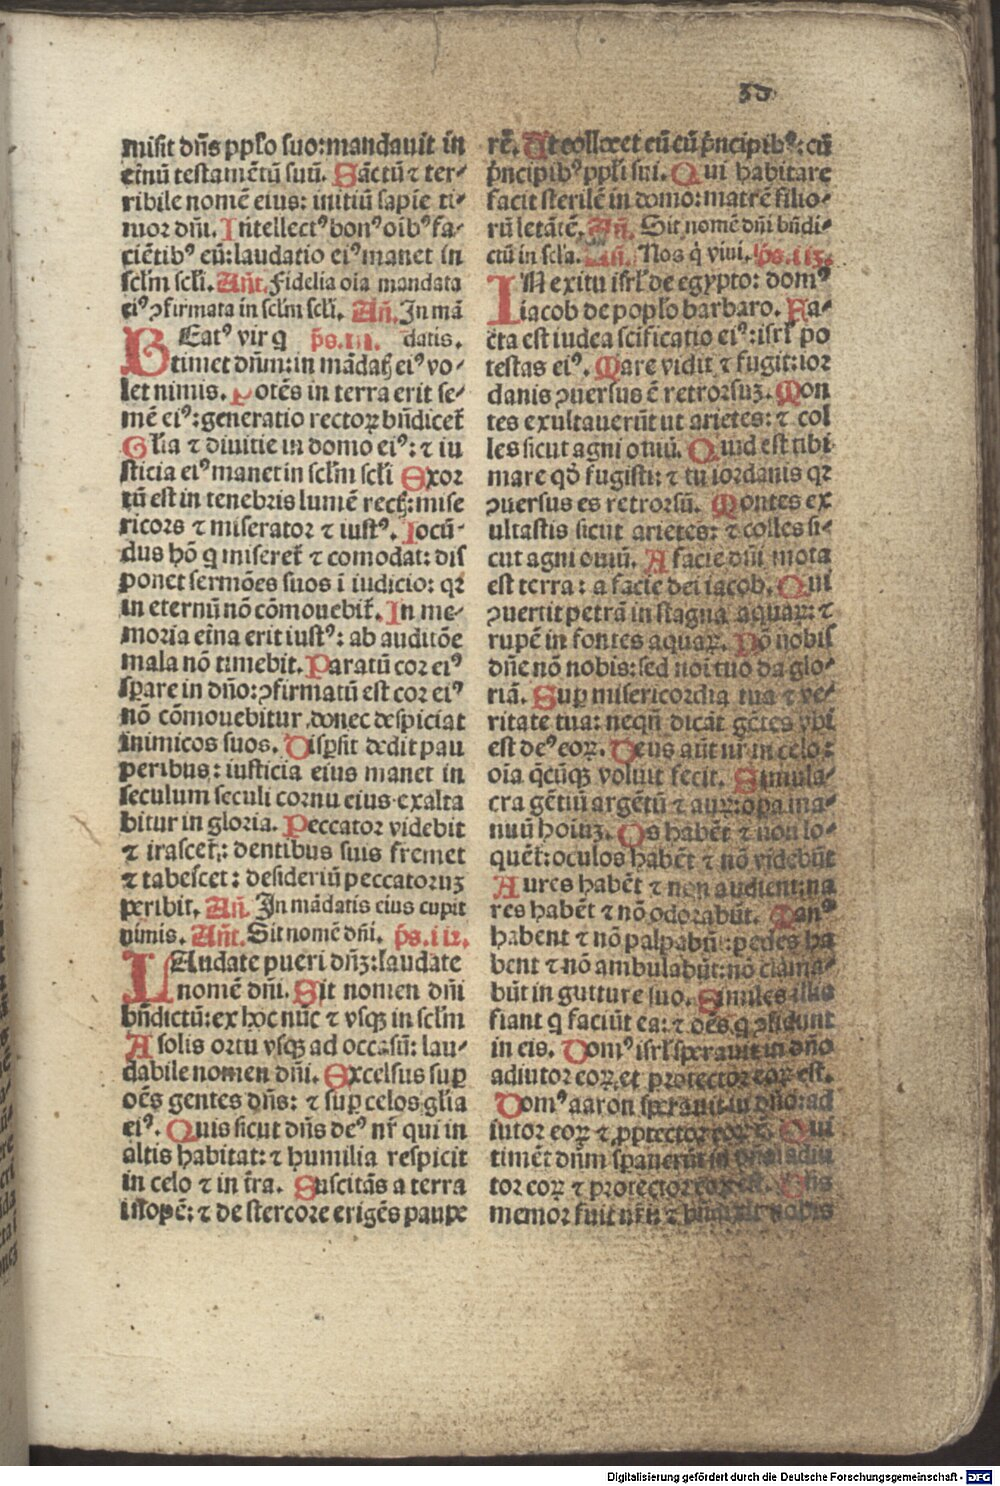 30
misit dñs pplo suo: mandauit in
eĩnũ testamẽtũ suũ. Sãctũ ⁊ ter⸗
ribile nomẽ eius: initiũ sapiẽ ti⸗
mor dñi. Intellectꝰ bonꝰ oĩbꝰ fa⸗
ciẽtibꝰ eũ: laudatio eiꝰ manet in
sclm̃ scli. Añt. Fidelia oĩa mandata
eiꝰ ꝯfirmata in sclm̃ scli. Añ. In mã
BEatꝰ vir q ps. iii. datis.
timet dñm: in mãdať eiꝰ vo⸗
let nimis. Potẽs in terra erit se⸗
mẽ eiꝰ: generatio rectoꝝ bñdiceť
Glia ⁊ diuitie in domo eiꝰ: ⁊ iu
sticia eiꝰ manet in sclm̃ scli Exor
tũ est in tenebris lumẽ rectꝭ: mise
ricors ⁊ miserator ⁊ iustꝰ. Iocũ⸗
dus hõ q misereť ⁊ comodat: dis
ponet sermões suos ĩ iudicio: qꝛ
in eternũ nõ cõmouebiť. In me⸗
moria eĩna erit iustꝰ: ab auditõe
mala nõ timebit. Paratũ cor eiꝰ
sꝑare in dño: ꝯfirmatũ est cor eiꝰ
nõ cõmouebitur donec despiciat
inimicos suos. Disꝑsit dedit pau
peribus: iusticia eius manet in
seculum seculi cornu eius exalta
bitur in gloria. Peccator videbit
⁊ irasceť: dentibus suis fremet
⁊ tabescet: desideriũ peccatorum
peribit. Añ. In mãdatis eius cupit
nimis. Añt. Sit nomẽ dñi. ps. iiz.
LAudate pueri dñm: laudate
nomẽ dñi. Sit nomen dñi
bñdictũ: ex hoc nũc ⁊ vsqꝫ in sclm̃
A solis ortu vsqꝫ ad occasũ: lau⸗
dabile nomen dñi. Excelsus suꝑ
oẽs gentes dñs: ⁊ suꝑ celos glia
eiꝰ. Quis sicut dñs deꝰ nr̃ qui in
altis habitat: ⁊ humilia respicit
in celo ⁊ in ťra. Suscitãs a terra
inopẽ: ⁊ de stercore erigẽs paupe
rẽ. Ut collocet eũ cũ p̃ncipibꝰ: cũ
p̃ncipibꝰ ppli sui. Qui habitare
facit sterilẽ in domo: matrẽ filio⸗
rũ letãtẽ. Añ. Sit nomẽ dñi bñdi⸗
ctũ in scla. Añ. Nos q̇ viui. ps. iiz.
IN exitu isrl̃ de egypto: domꝰ
iacob de poplo barbaro. Fa⸗
cta est iudea scificatio eiꝰ: isrl̃ po
testas eiꝰ. Mare vidit ⁊ fugit: ior
danis ꝯuersus ẽ retrorsum. Mon
tes exultauerũt ut arietes: ⁊ col
les sicut agni ouiũ. Quid est tibi
mare qď fugisti: ⁊ tu iordanis qꝛ
ꝯuersus es retrorsũ. Montes ex
ultastis sicut arietes: ⁊ colles si⸗
cut agni ouiũ. A facie dñi mota
est terra: a facie dei iacob. Qui
ꝯuertit petrã in stagna aquaꝝ: ⁊
rupẽ in fontes aquaꝝ. Nõ nobis
dñe nõ nobis: sed noĩ tuo da glo⸗
riã. Suꝑ misericordia tua ⁊ ve⸗
ritate tua: neqñ dicãt gẽtes vbi
est deꝰ eoꝝ. Deus aũt nr̃ in celo:
oĩa q̃cũqꝫ voluit fecit. Simula⸗
cra gẽtiũ argẽtũ ⁊ auꝝ: opa ma⸗
nuũ hoĩum. Os habẽt ⁊ non lo⸗
quẽť: oculos habẽt ⁊ nõ videbũt
Aures habẽt ⁊ non audient: na
res habẽt ⁊ nõ odorabũt. Manꝰ
habent ⁊ nõ palpabũt: pedes ha
bent ⁊ nõ ambulabũt: nõ clama⸗
bũt in gutture suo. Similes illis
fiant q faciũt ea: ⁊ oẽs q ꝯfidunt
in eis. Domꝰ isrl̃ sperauit in dño
adiutor eoꝝ et protector eoꝝ est.
Domꝰ aaron sperauit in dño: ad
iutor eoꝝ ⁊ ꝓtector eoꝝ ẽ. Qui
timẽt dñm sꝑauerũt in dño: adiu
tor eoꝝ ⁊ protector eoꝝ est. Dñs
memor fuit nr̃i: ⁊ bñdixit nobis
Digitalisierung gefördert durch die Deutsche Forschungsgemeinschaft - DFG